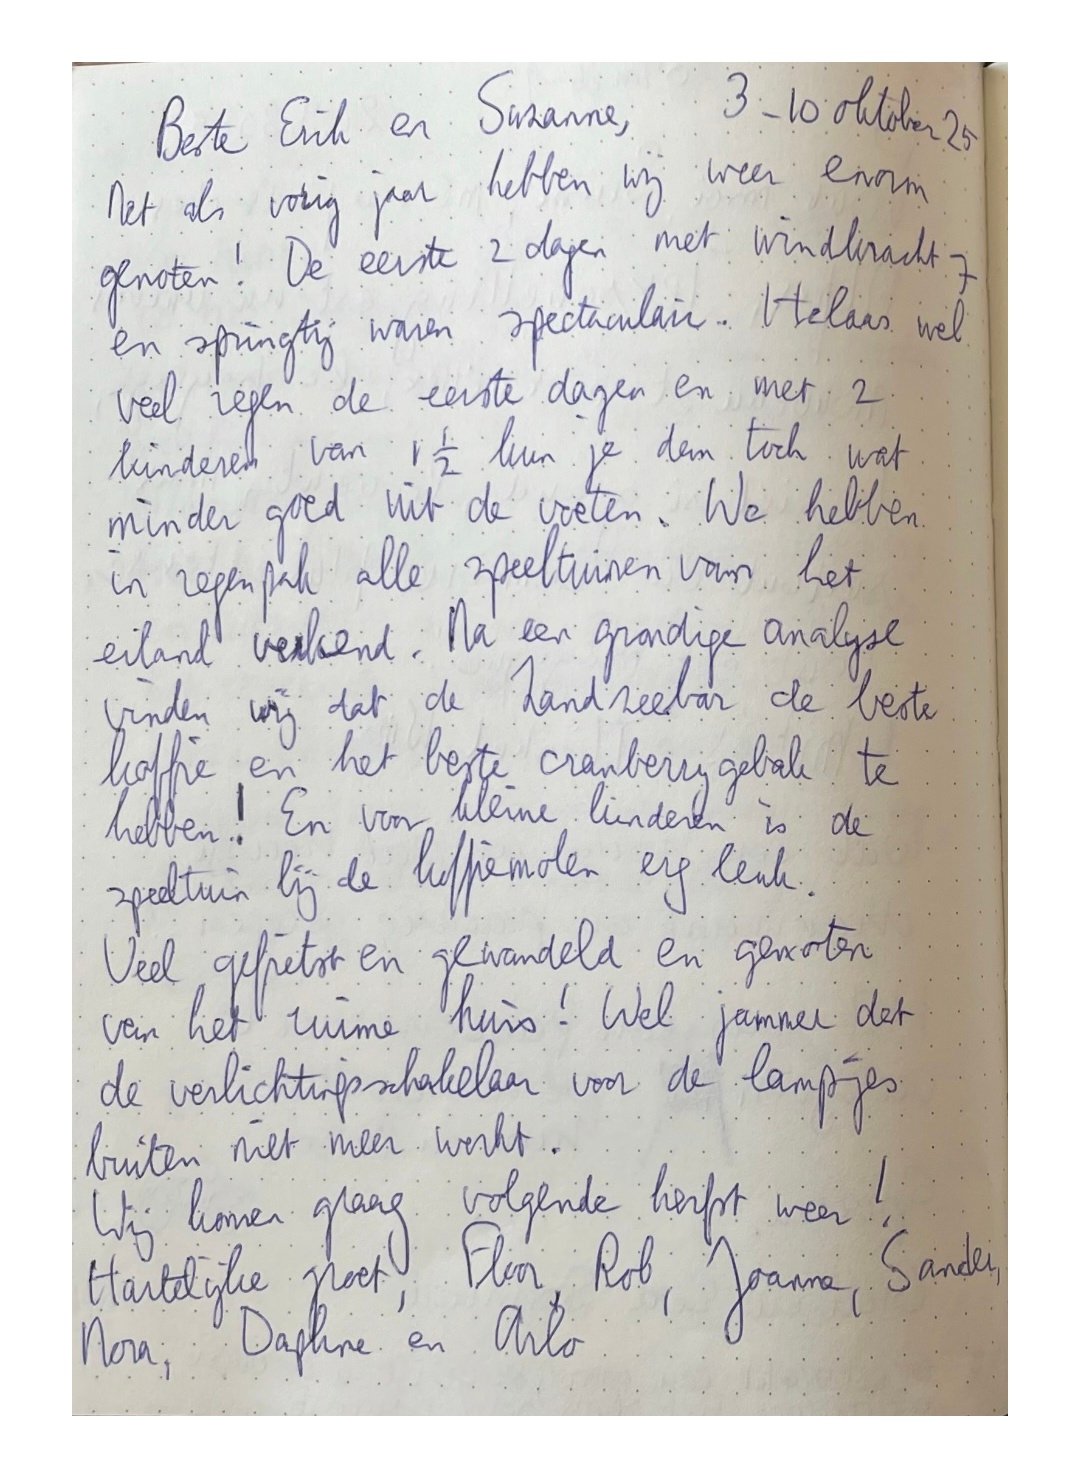 Beste Erik en Suzanne, 3-10 oktober 25
Net als vorig jaar hebben wij weer enorm
genoten! De eerste 2 dagen met windkracht 7
en springtij waren spectaculair. Helaas wel
veel regen de eerste dagen en met 2
kinderen van 1 1/2 kun je dan toch wat
minder goed uit de voeten. We hebben
in regenpak alle speeltuinen van het
eiland verkend. Na een grondige analyse
vinden wij dat de Zandzeebar de beste
koffie en het beste cranberrygebak te
hebben! En voor kleine kinderen is de
speeltuin bij de koffiemolen erg leuk.
Veel gefietst en gewandeld en genoten
van het ruime huis! Wel jammer dat
de verlichtingsschakelaar voor de lampjes
buiten niet meer werkt.
Wij komen graag volgende herfst weer!
Hartelijke groet, Floor, Rob, Joanna, Sander,
Nora, Daphne en Arlo